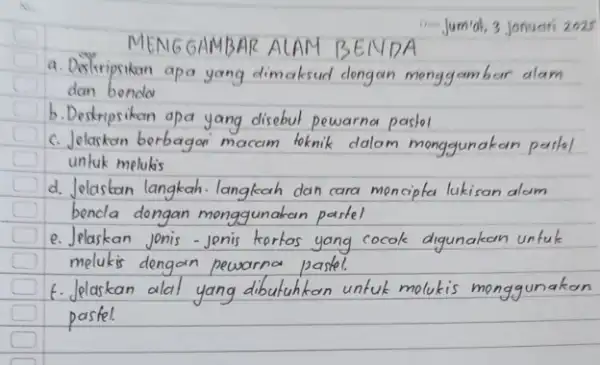 Jum'at, 3 Januari 2025
MENGGAMBAR ALAM BENDA
a. Deskripsikan apa yang dimaksud dengan menggambar alam
dan benda
b. Deskripsikan apa yang disebut pewarna pastel
c. Jelaskan berbagai macam teknik dalam menggunakan pastel
untuk melukis
d. Jelaskan langkah-langkah dan cara mencipta lukisan alam
benda dengan menggunakan pastel
e. Jelaskan jenis - jenis kertas yang cocok digunakan untuk
melukis dengan pewarna pastel.
f. Jelaskan alat yang dibutuhkan untuk melukis menggunakan
pastel.